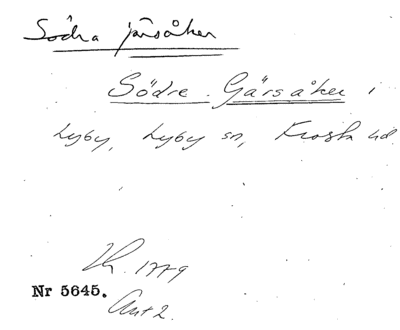 Södra järsåker
Södre Gärsåker i
Lyby, Lyby sn, Frosta hd
Lh. 1779
Nr 5645.
Akt 2.